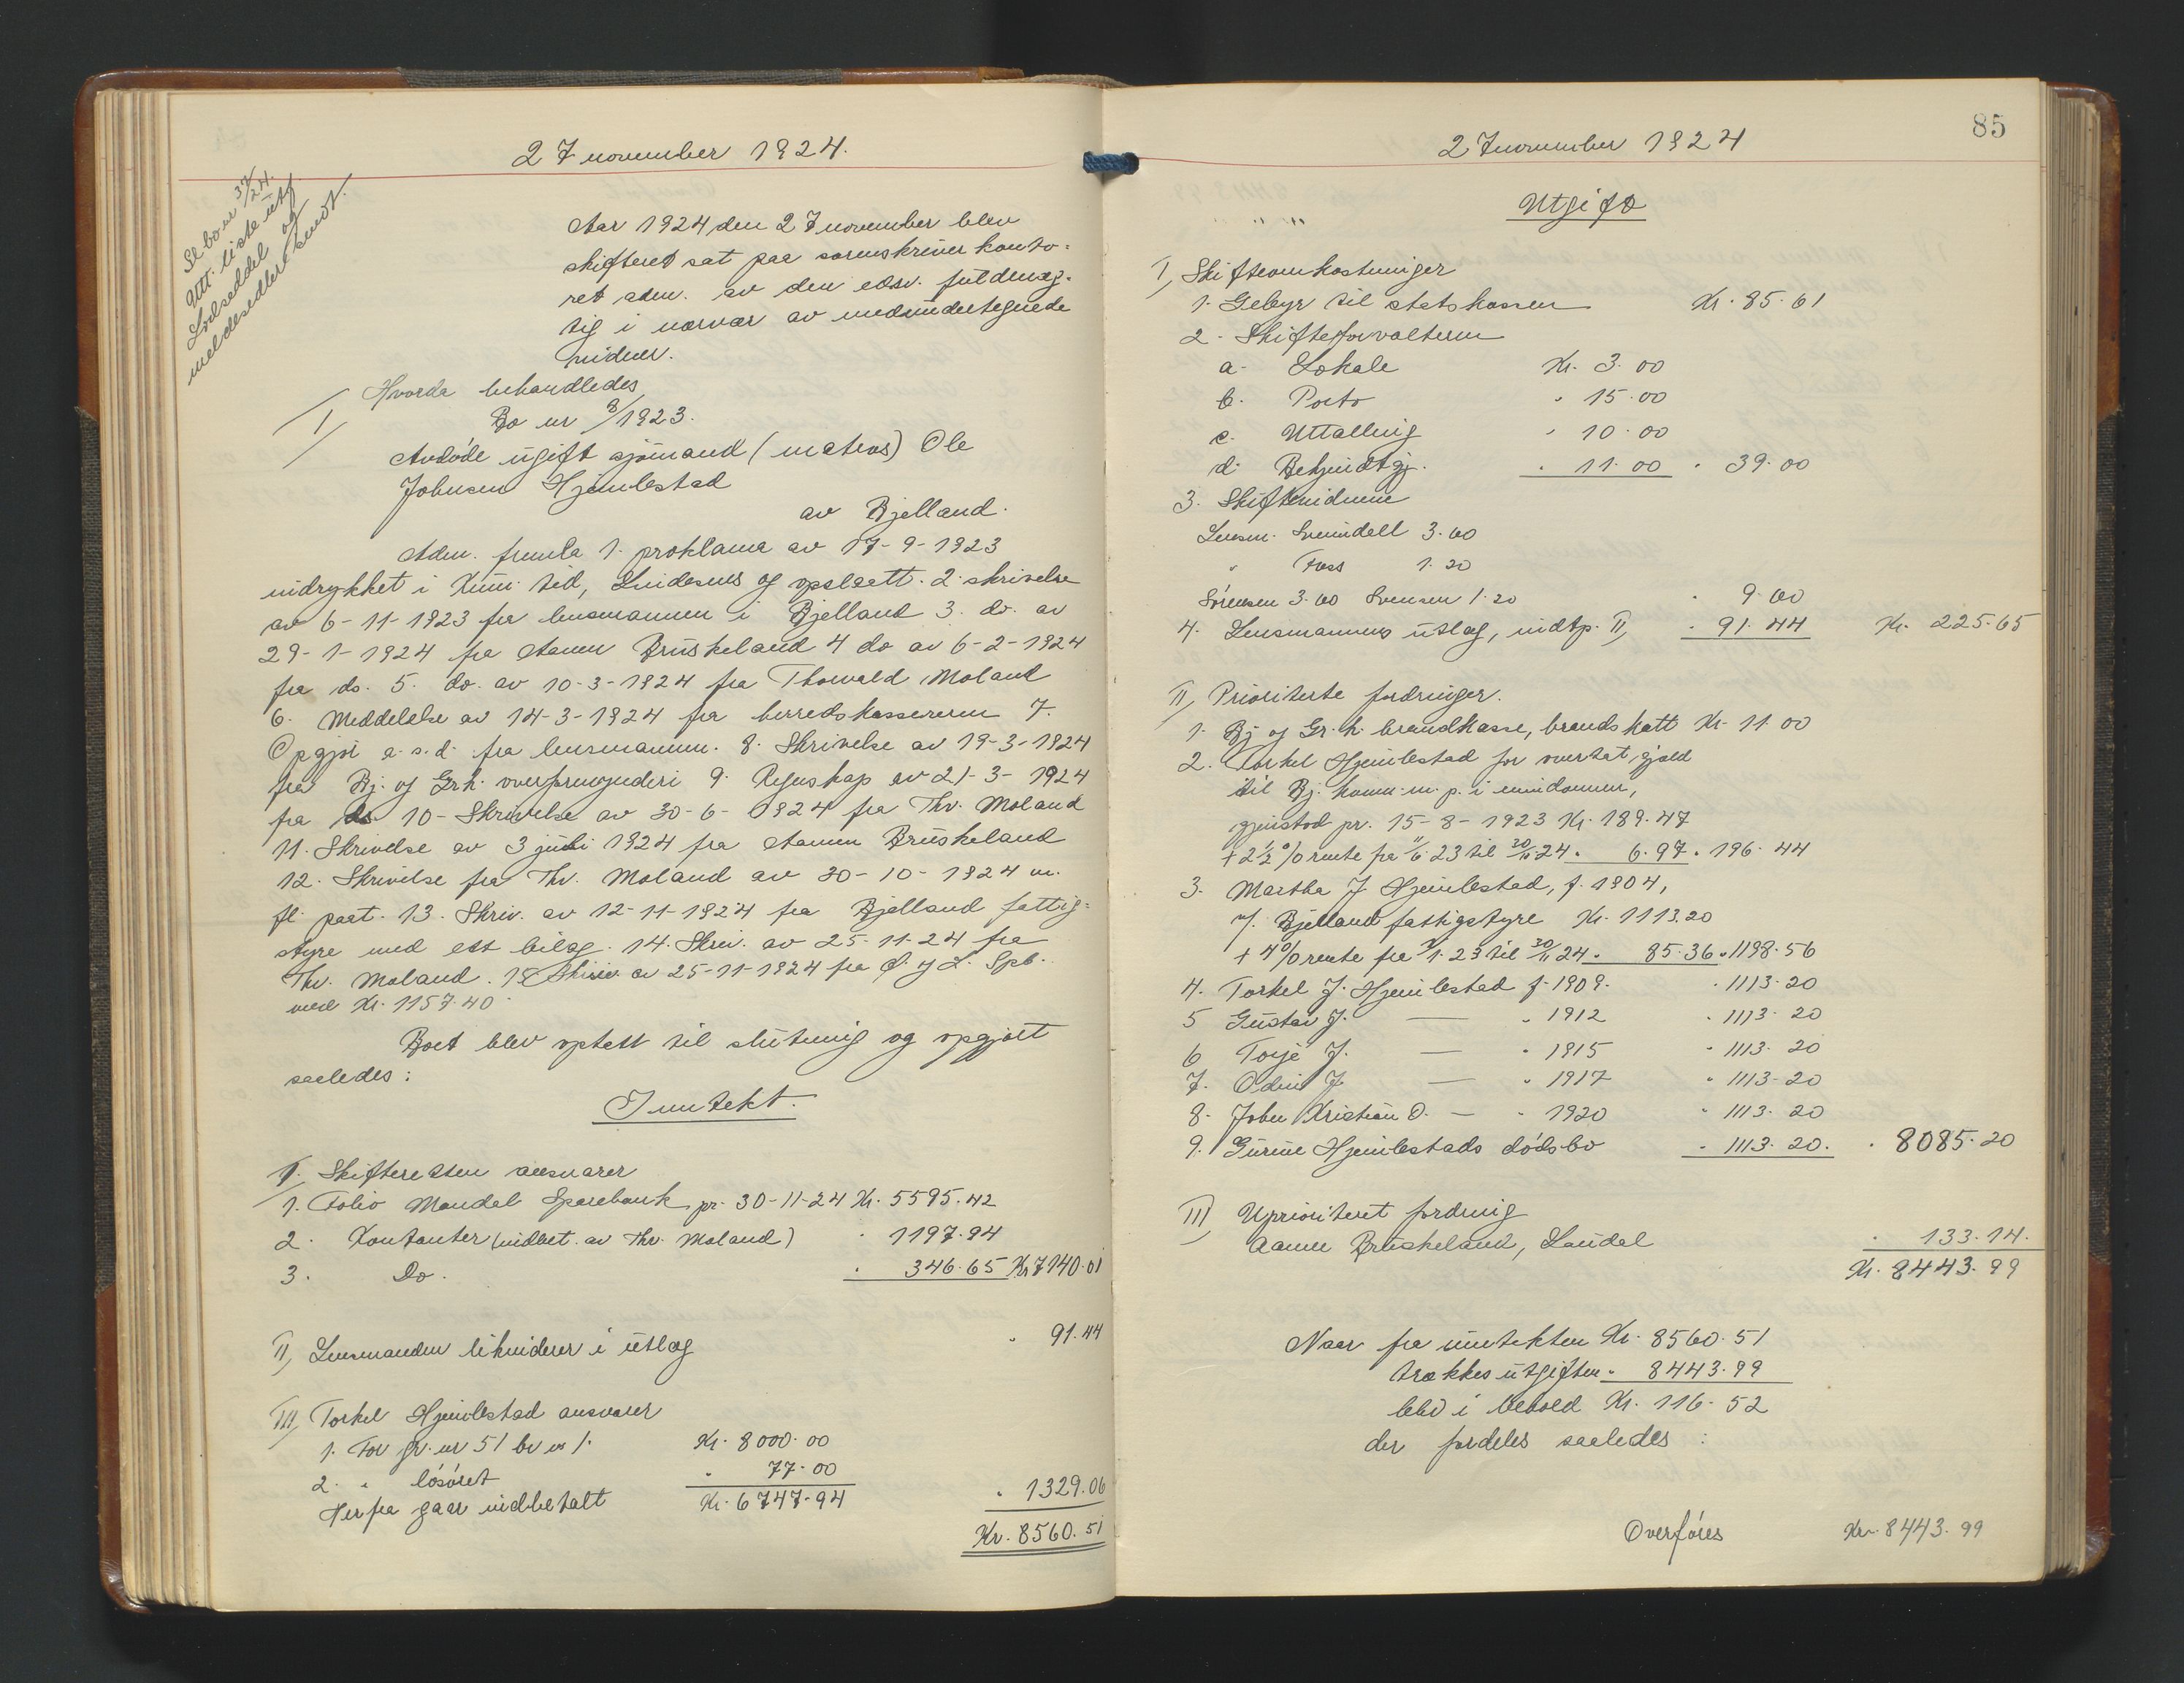 27 november 1924.
Sl. bo nr 37/24.
Utl. liste utf.
Lodseddel og
meldesedler sendt.
Aar 1924 den 27 november blev
skifteret sat paa sorenskriver konto=
ret adm. av den edsv. fuldmæg-
tig i nærvær av medundertegnede
vidner.
Hvorda behandledes
1/ Bo nr 8/1923.
Avdøde ugift sjømand (matros) Ole
Johnsen Hjemlestad
av Bjelland.
Adm. fremla 1. proklama av 17-9-1923
indrykket i Kun. tid, Lindesnes og opslaatt. 2. skrivelse
av 6-11-1923 fra lensmannen i Bjelland 3. do. av
29-1-1924 fra Aanen Bruskeland 4 do av 6-2-1924
fra do. 5. do. av 10-3-1924 fra Thorvald Moland
6. Meddelelse av 14-3-1924 fra herredskassereren 7.
Opgjør a.s.d. fra lensmannen. 8. Skrivelse av 19-3-1924
fra Bj. og Grh. overformynderi 9. Regnskap av 21-3-1924
fra do 10- Skrivelse av 30-6-1924 fra Thv. Moland
11. Skrivelse av 3 juli 1924 fra Aanen Bruskeland
12. Skrivelse fra Thv. Moland av 30-10-1924 m.
fl. paat. 13. Skriv. av 12-11-1924 fra Bjelland fattig=
styre med ett bilag. 14. Skriv. av 25-11-24 fra
Thv. Moland. 15 Skriv. av 25-11-1924 fra Ø. og L. Spb.
med Kr. 1157.40.
Boet blev optatt til slutning og opgjort
saaledes:
Inntekt.
I. Skifteretten ansvarer
1. Folio Mandal Sparebank pr. 30-11-24 Kr. 5595.42
2. Kontanter (indbet. av Thv. Moland) " 1197.94
3. Do. " 346.65 Kr 7140.01
II, Lensmanden likviderer i utlæg " 91.44
III, Torkel Hjemlestad ansvarer
1. For gr. nr 51 br nr 1. Kr. 8000.00
2. " løsøret " 77.00
Herfra gaar indbetalt Kr. 6747.94 " 1329.06
Kr. 8560.51
85
27 november 1924
Utgift
I, Skifteomkostninger
1. Gebyr til statskassen Kr. 85.61
2. Skifteforvalteren
a. Lokale Kr. 3.00
b. Porto " 15.00
c. Uttalling " 10.00
d. Bekjendtgj. " 11.00 " 39.00
3. Skiftevidnene
Lensm. Svindall 3.60
" Foss 1.20
Sørensen 3.00 Svensen 1.20 " 9.00
4. Lensmannens utlæg, indtp. II, " 91.44 Kr. 225.65
II, Prioriterte fordringer.
1. Bj og Gr. h. brandkasse, brandskatt Kr. 11.00
2. Torkel Hjemlestad for overtat gjæld
til Bj. komm. m. p. i eiendommen,
gjenstod pr. 15-8-1923 Kr. 189.47
+ 2½ % rente fra 11/6.23 til 30/11.24. 6.97 " 196.44
3. Martha J Hjemlestad, f. 1904,
v/. Bjelland fattigstyre Kr. 1113.20
+ 4 % rente fra 1/1.23 til 30/11 24. 85.36 " 1198.56
4. Torkel J. Hjemlestad f. 1909. " 1113.20
5 Gustav J. — " 1912 " 1113.20
6 Torje J. — " 1915 " 1113.20
7. Odin J. — " 1917 " 1113-20
8. John Kristian O. — " 1920 " 1113.20
9. Gurine Hjemlestads dødsbo " 1113.20. " 8085.20
III, Uprioritert fordring
Aanen Bruskeland, Laudal " 133.14.
Kr. 8443.99
Naar fra inntekten Kr. 8560.51
trækkes utgiften " 8443.99
blev i behold Kr. 116.52
der fordeles saaledes :
Overføres Kr. 8443.99